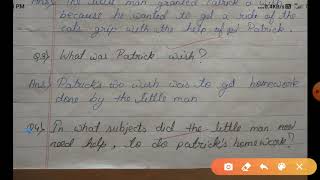 PM
Ans) The little man granted Patrick a wish
because he wanted to get a ride of the
cats grip with the help of Patrick.
Q3) What was Patrick wish?
Ans) Patrick's wish was to get homework
done by the little man
Q4) In what subjects did the little man
need help, to do patrick's homework?